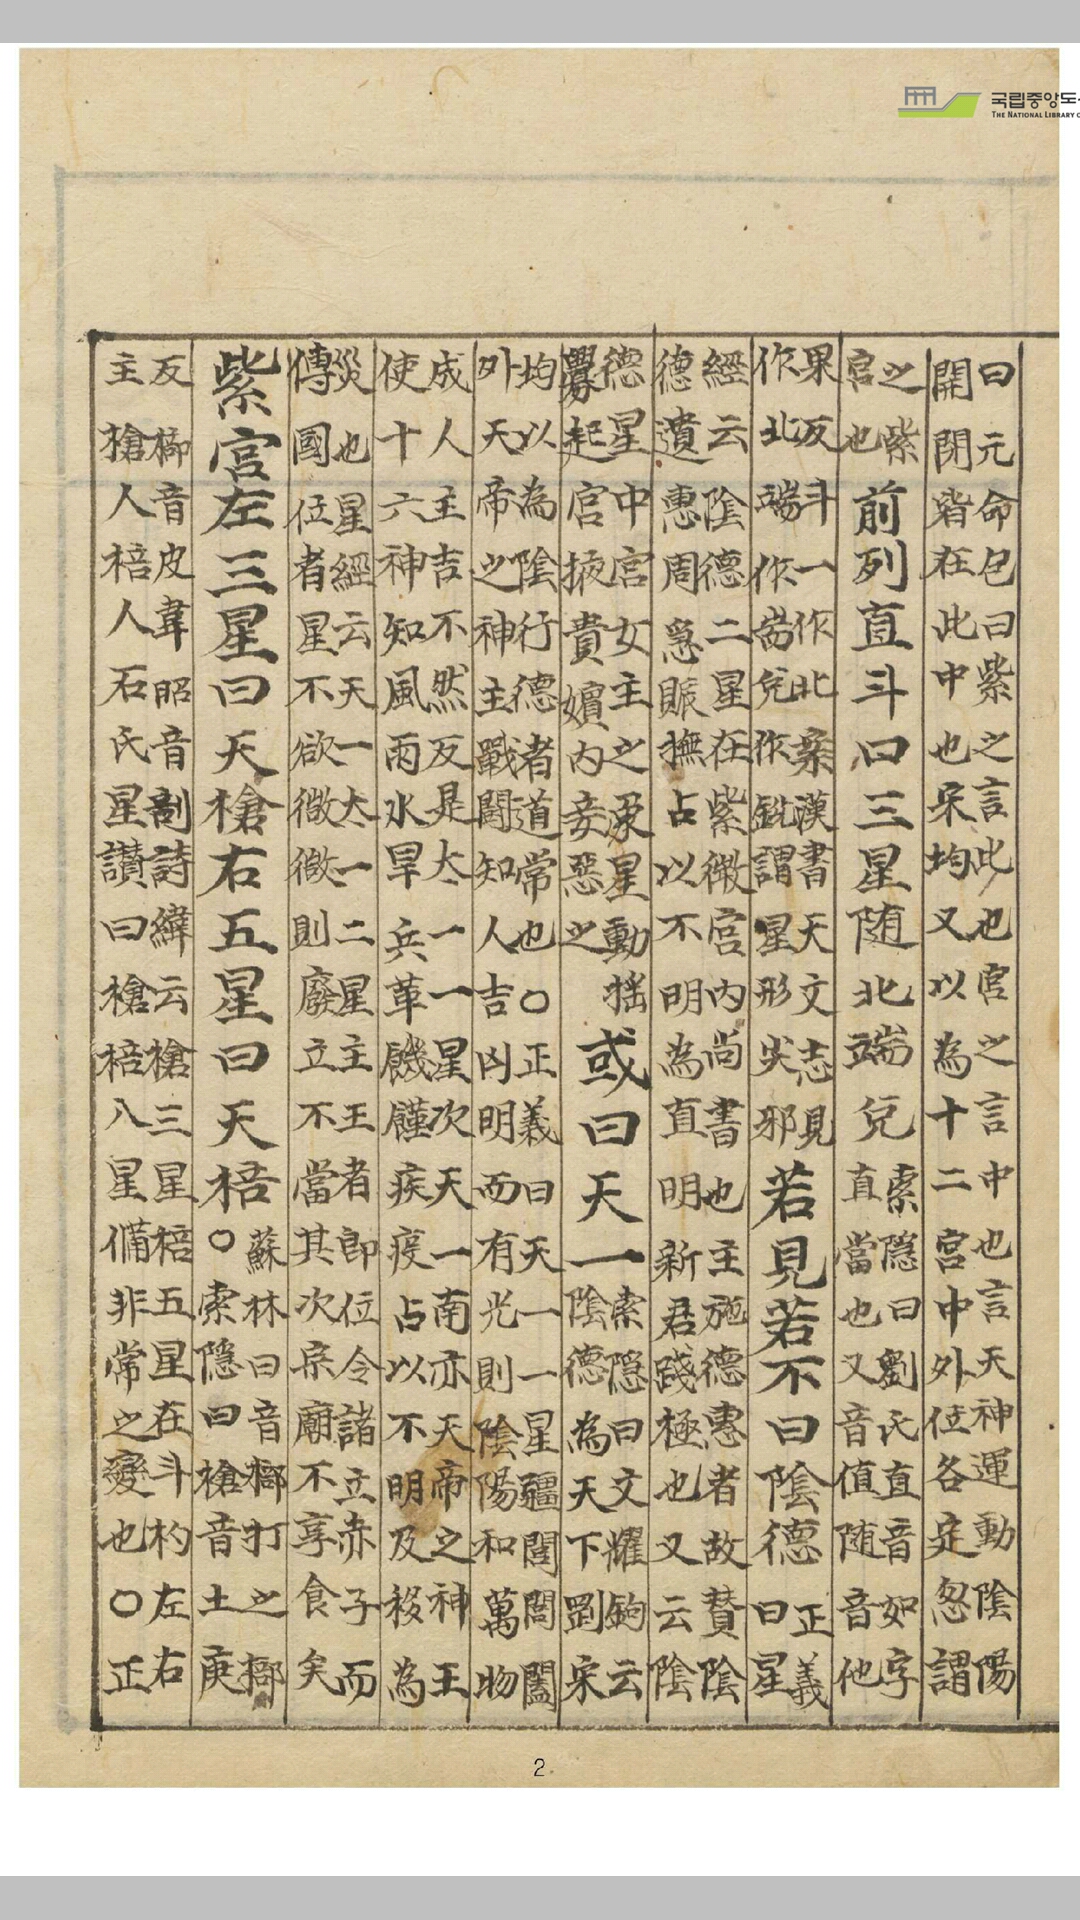 국립중앙도
THE NATIONAL LIBRARY O
曰元命包曰紫之言此也宮之言中也言天神運動陰陽
開閉皆在此中也宋均又以為十二宮中外位各定忽謂
之紫
宮也
前列直斗口三星随北端兌
索隱曰劉氏直音如字
直當也又音值随音他
果反斗一作北案漢書天文志見
作北端作耑兌作銳謂星形尖邪
若見若不曰陰德
正義
曰星
經云陰德二星在紫微宮內尚書也主施德惠者故賛陰
德遺惠周急賑撫占以不明為直明新君踐極也又云陰
德星中宮女主之象星動搖
釁起宮掖貴嬪內妾惡之
或曰天一
索隱曰文耀鉤云
陰德為天下剛宋
均以為陰行德者道常也○正義曰天一一星疆閶閶闔
外天帝之神主戰鬪知人吉凶明而有光則陰陽和萬物
成人主吉不然反是太一一星次天一南亦天帝之神王
使十六神知風雨水旱兵革饑饉疾疫占以不明及移為
災也星經云天一太一二星主王者即位令諸立赤子而
傳國位者星不欲微微則廢立不當其次宗廟不享食矣
紫宮左三星曰天槍右五星曰天棓○
蘇林曰音榔打之榔
索隱曰槍音土庚
反榔音皮韋昭音剖詩緯云槍三星棓五星在斗杓左右
主槍人棓人石氏星讃曰槍棓八星備非常之變也○正
2